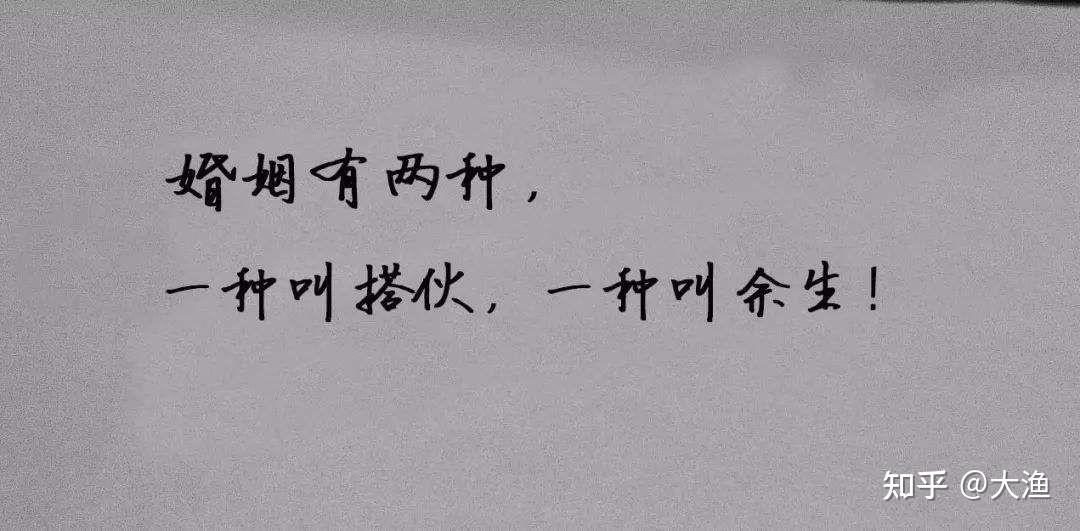 婚姻有两种，
一种叫搭伙，一种叫余生！
知乎 @大渔